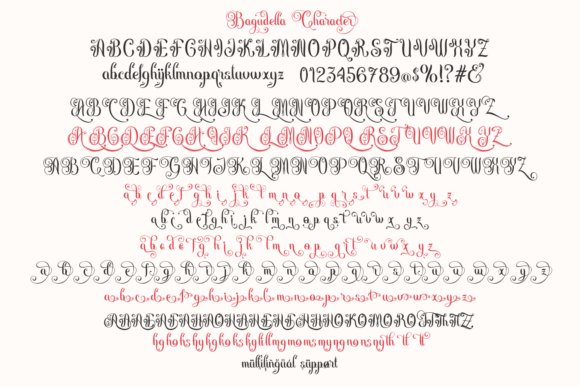 Bagudella Character
ABCDEFGHIJKLMNOPQRSTUVWXYZ
abcdefghijklmnopqrstuvwxyz 0123456789@$%!?#&
ABCDEFGHIJKLMNOPQRSTUVWXYZ
ABCDEFGHIJKLMNOPQRSTUVWXYZ
ABCDEFGHIJKLMNOPQRSTUVWXYZ
a b c d e f g h i j k l m n o p q r s t u v w x y z
a b c d e f g h i j k l m n o p q r s t u v w x y z
a b c d e f g h i j k l m n o p q r s t u v w x y z
a b c d e f g h i j k l m n o p q r s t u v w x y z
a b c d e f g h i j k l m n o p q r s t u v w x y z
multilingual support